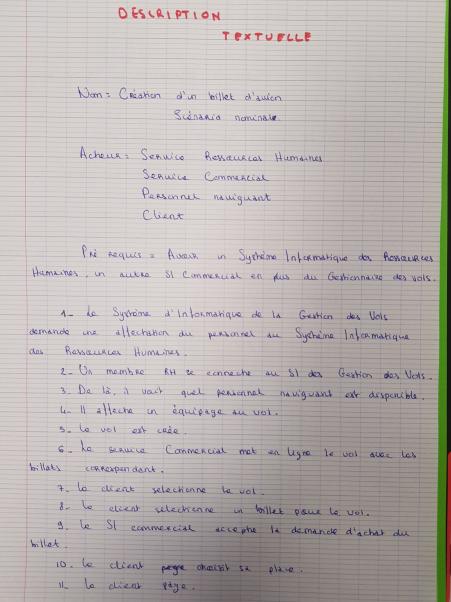 DESCRIPTION
TEXTUELLE
Nom = Création d'un billet d'avion
Scénario nominale.
Acteur = Service Ressources Humaines
Service Commercial
Personnel naviguant
Client
Pré requis = Avoir un Système Informatique des Ressources
Humaines, un autre SI Commercial en plus du Gestionnaire des vols.
1- Le Système d'Informatique de la Gestion des Vols
demande une affectation du personnel au Système Informatique
des Ressources Humaines.
2- Un membre RH se connecte au SI des Gestion des Vols.
3- De là, il voit quel personnel naviguant est disponible.
4- Il affecte un équipage au vol.
5- Le vol est crée.
6- Le service Commercial met en ligne le vol avec les
billets correspondant.
7- Le client selectionne le vol.
8- Le client selectionne un billet pour le vol.
9- Le SI commercial accepte la demande d'achat du
billet.
10- Le client choisit sa place.
11- Le client paye.